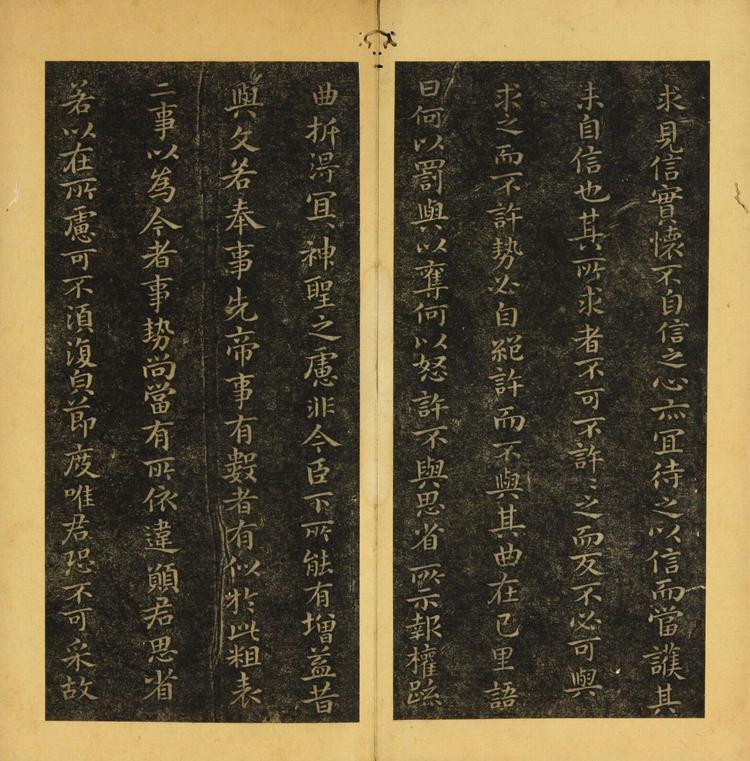 求見信實懷不自信之心亦冝待之以信而當護其
未自信也其所求者不可不許許之而反不必可與
求之而不許勢必自絕許而不與其曲在已里語
曰何以罰與以奪何以怒許不與思省所示報權䟽
曲折得冝冝神聖之慮非今臣下所能有增益昔
與文若奉事先帝事有數者有似於此粗表
二事以為今者事勢尚當有所依違願君思省
若以在所慮可不須復皃節度唯君恐不可采故